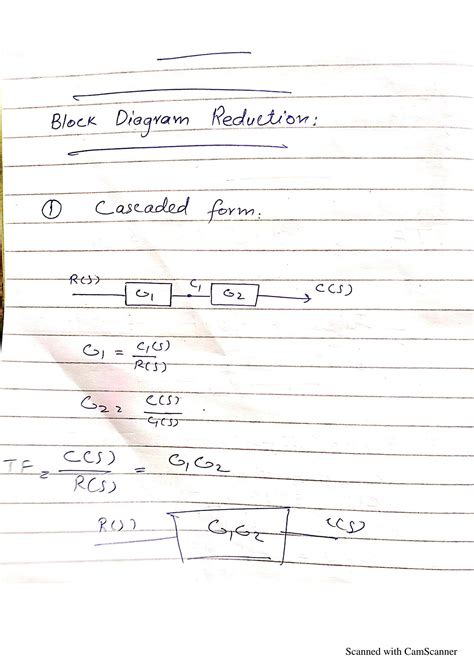 Block Diagram Reduction:
① Cascaded form:
R(s) G1 C1 G2 C(s)
G1 = C1(s) / R(s)
G2 = C(s) / C1(s)
TF = C(s) / R(s) = G1G2
R(s) G1G2 C(s)
Scanned with CamScanner